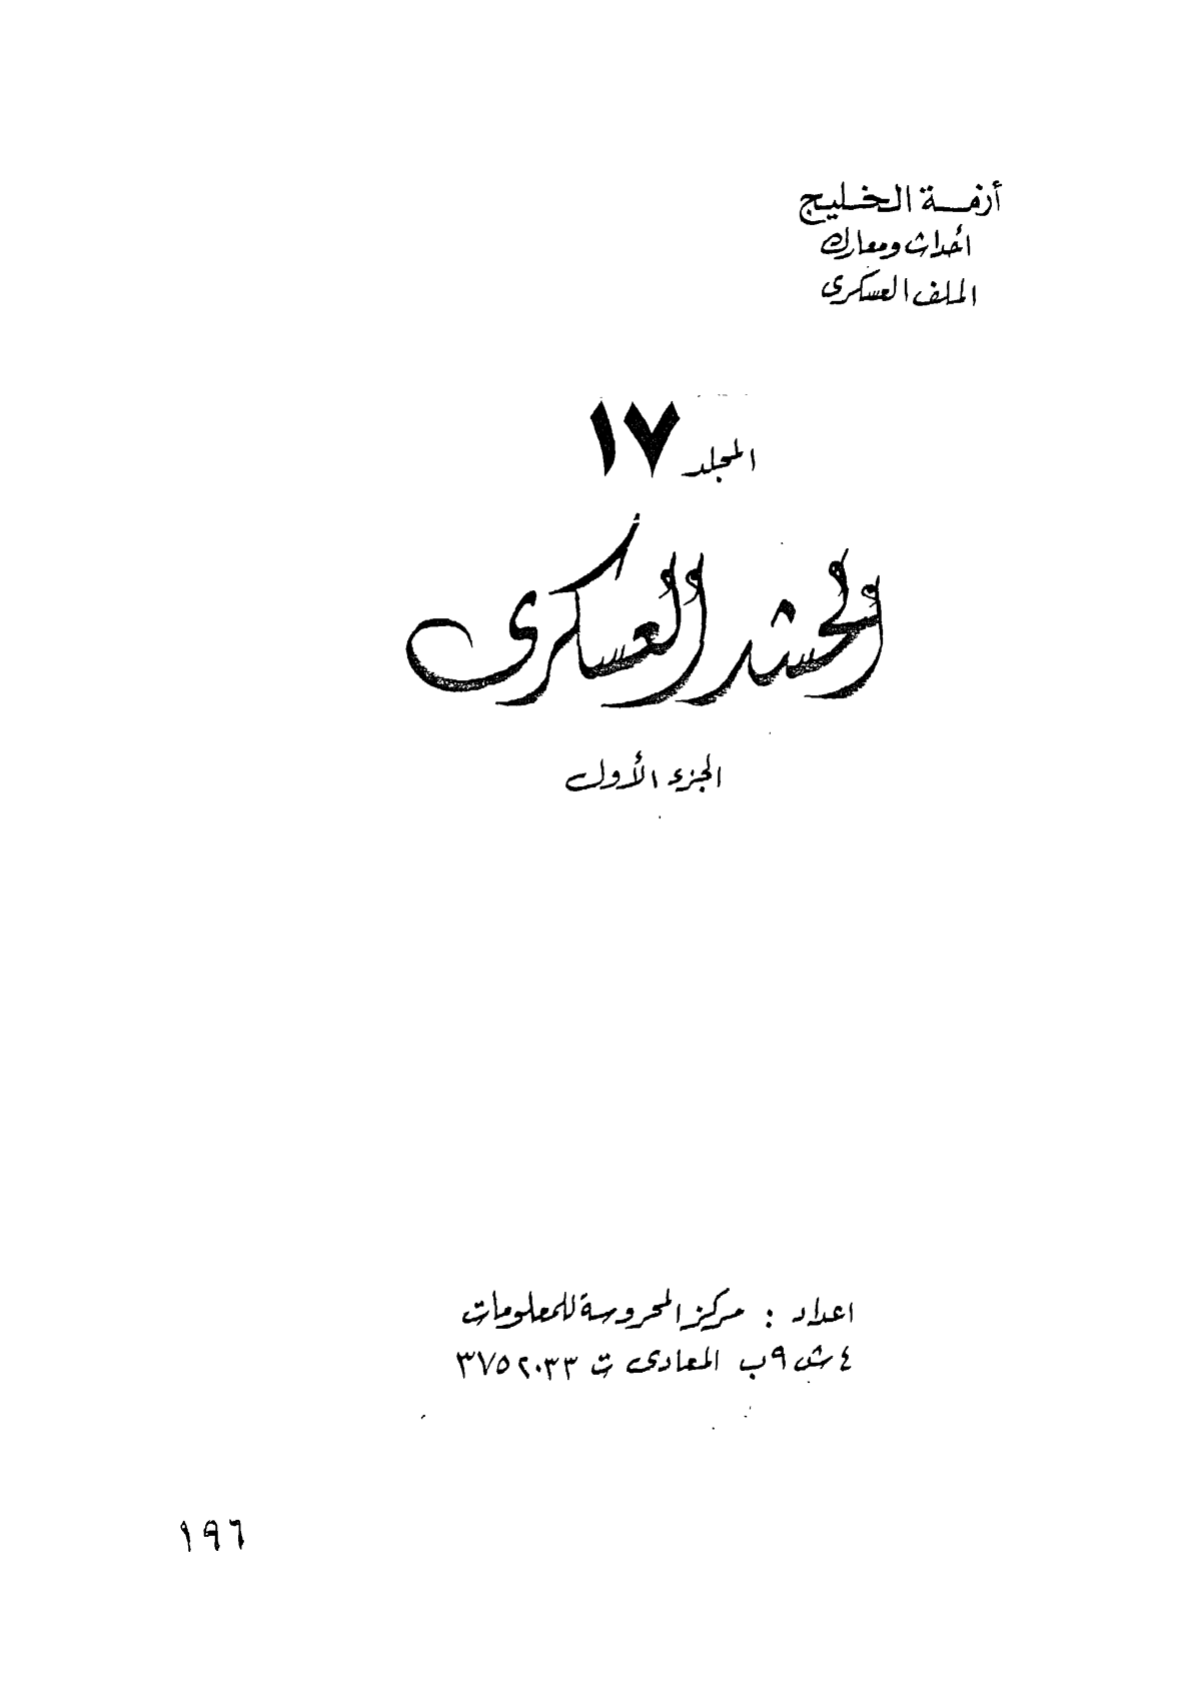 أزمة الخليج
أحداث ومعارك
الملف العسكرى
المجلد ١٧
الحشد العسكرى
الجزء الأول
اعداد : مركز المحروسة للمعلومات
٤ ش ٩ ب المعادى ت ٣٧٥٢٠٣٣
١٩٦